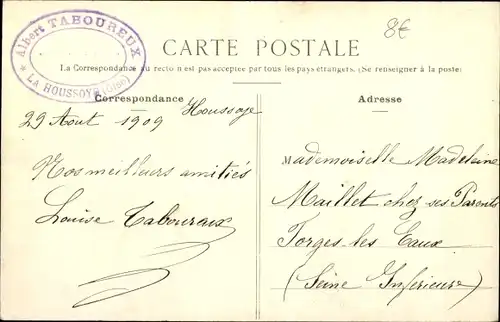 Albert TABOUREUX
★ LA HOUSSOYE (Oise) ★
8€
CARTE POSTALE
La Correspondance au recto n'est pas acceptée par tous les pays étrangers. (Se renseigner à la poste)
Correspondance
Adresse
Houssoye
29 Aout 1909
Nos meilleurs amitiés
Louise Taboureux
Mademoiselle Madeleine
Maillet chez ses Parents
Forges-les Eaux
(Seine Inférieure)